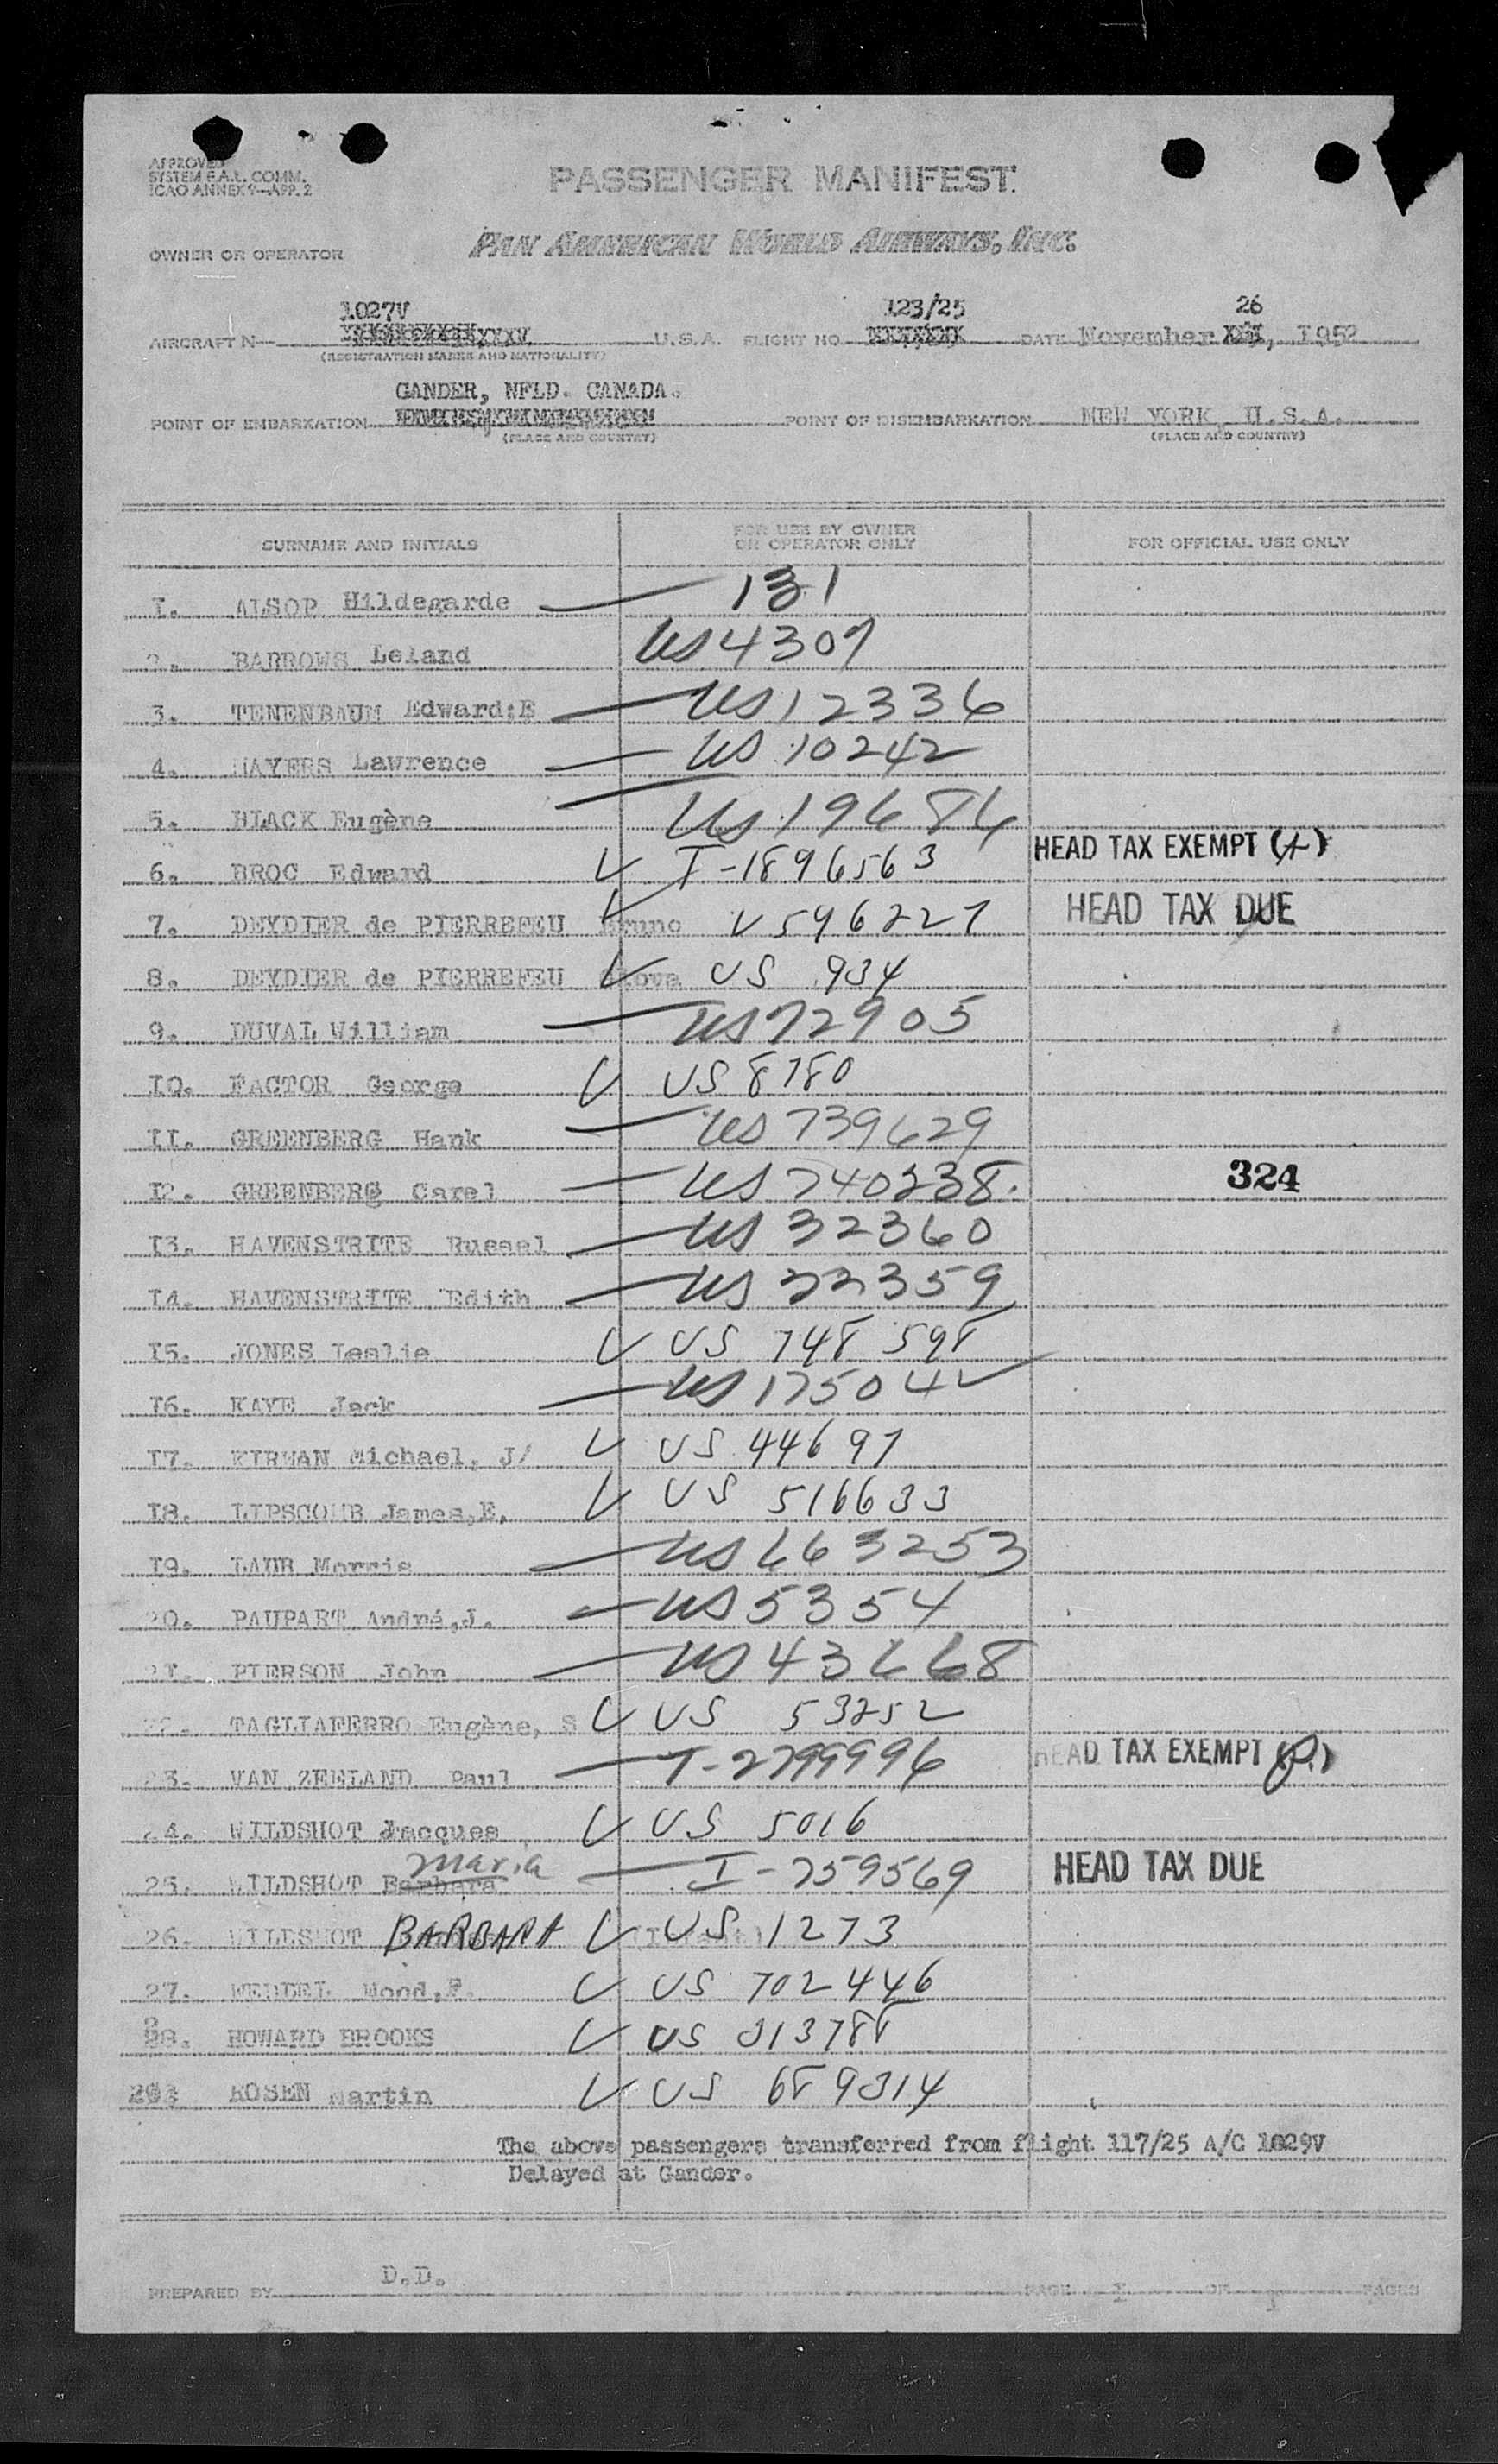 APPROVED
SYSTEM F.A.L. COMM.
ICAO ANNEX 9—APP. 2
PASSENGER MANIFEST
OWNER OR OPERATOR PAN AMERICAN WORLD AIRWAYS, INC.
1027V 123/25 26
AIRCRAFT N— U.S.A. FLIGHT NO. DATE November , 1952
(REGISTRATION MARKS AND NATIONALITY)
GANDER, NFLD. CANADA.
POINT OF EMBARKATION POINT OF DISEMBARKATION NEW YORK, U.S.A.
(PLACE AND COUNTRY) (PLACE AND COUNTRY)
SURNAME AND INITIALS FOR USE BY OWNER OR OPERATOR ONLY FOR OFFICIAL USE ONLY
1. ALSOP Hildegarde 131
2. BARROWS Leland US 4307
3. TENENBAUM Edward:E US 12336
4. MAYERS Lawrence US 10242
5. BLACK Eugène US 19686
6. BROC Edward I-1896563 HEAD TAX EXEMPT
7. DEYDIER de PIERREFEU Bruno V 596227 HEAD TAX DUE
8. DEYDIER de PIERREFEU US 934
9. DUVAL William US 72905
10. FACTOR George US 8780
11. GREENBERG Hank US 739629
12. GREENBERG Carel US 740238. 324
13. HAVENSTRITE Russel US 32360
14. HAVENSTRITE Edith US 32359
15. JONES Leslie US 748598
16. KAYE Jack US 17504
17. KIRWAN Michael, J/ US 44697
18. LIPSCOMB James,E. US 516633
19. LAUB Morris US 663253
20. PAUPART André,J. US 5354
21. PIERSON John US 43668
22. TAGLIAFERRO Eugène, S US 53252
23. VAN ZEELAND Paul I-2799996 HEAD TAX EXEMPT
24. WILDSHOT Jacques US 5016
Maria
25. WILDSHOT Barbara I-759569 HEAD TAX DUE
26. WILDSHOT BARBARA (Infant) US 1273
27. Wood,P. US 702446
28. HOWARD BROOKS US 313788
29 ROSEN Martin US 689314
The above passengers transferred from flight 117/25 A/C 1029V
Delayed at Gander.
D.D.
PREPARED BY PAGE I OF I PAGES